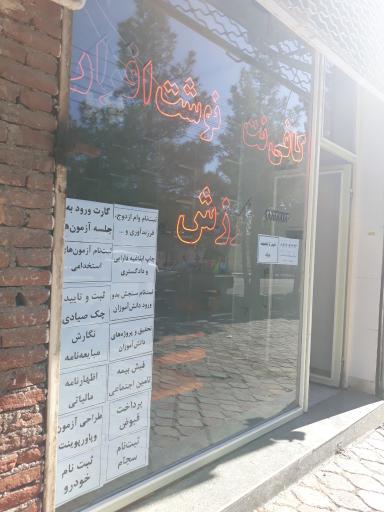 کافی نت
نوشت افزار
ارزش
کارت ورود به
جلسه آزمون‌ها
ثبت‌نام وام ازدواج،
فرزندآوری و ...
ثبت‌نام آزمون‌های
استخدامی
چاپ ابلاغیه دارایی
و دادگستری
ثبت و تایید
چک صیادی
ثبت‌نام سنجش بدو
ورود دانش‌آموزان
نگارش
مبایعه‌نامه
تحقیق و پروژه‌های
دانش‌آموزان
اظهارنامه
مالیاتی
فیش بیمه
تامین اجتماعی
طراحی آزمون
وپاورپوینت
پرداخت
قبوض
ثبت نام
خودرو
ثبت‌نام
سجام